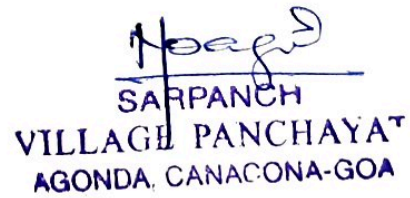 SARPANCH
VILLAGE PANCHAYAT
AGONDA, CANACONA-GOA